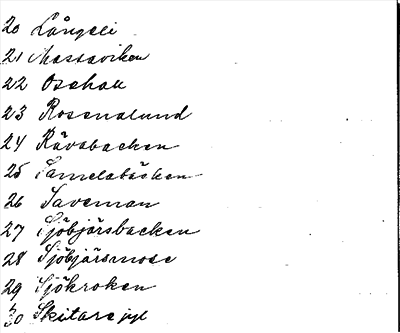 20 Långeli
21 Massaviken
22 Osehall
23 Rosenalund
24 Rävabacken
25 Samelabäcken
26 Saveman
27 Sjöbjärsbacken
28 Sjöbjärsmose
29 Sjökroken
30 Skitarejyl